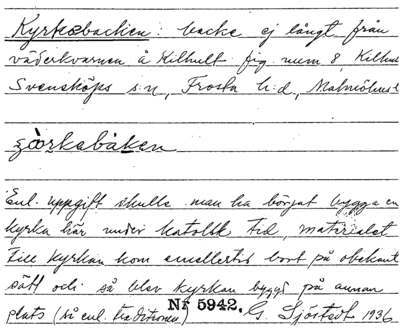 Kyrkebacken: backe ej långt från
väderkvarnen å Kilhult fig. num 8, Kilhu
Svensköps s:n, Frosta h:d, Malmöhusl
Enl. uppgift skulle man ha börjat bygga en
kyrka här under katolsk tid, materialet
till kyrkan kom emellertid bort på obekant
sätt och så blev kyrkan byggd på annan
plats (så enl. traditionen) Nr 5942. G. Sjöstedt 1936